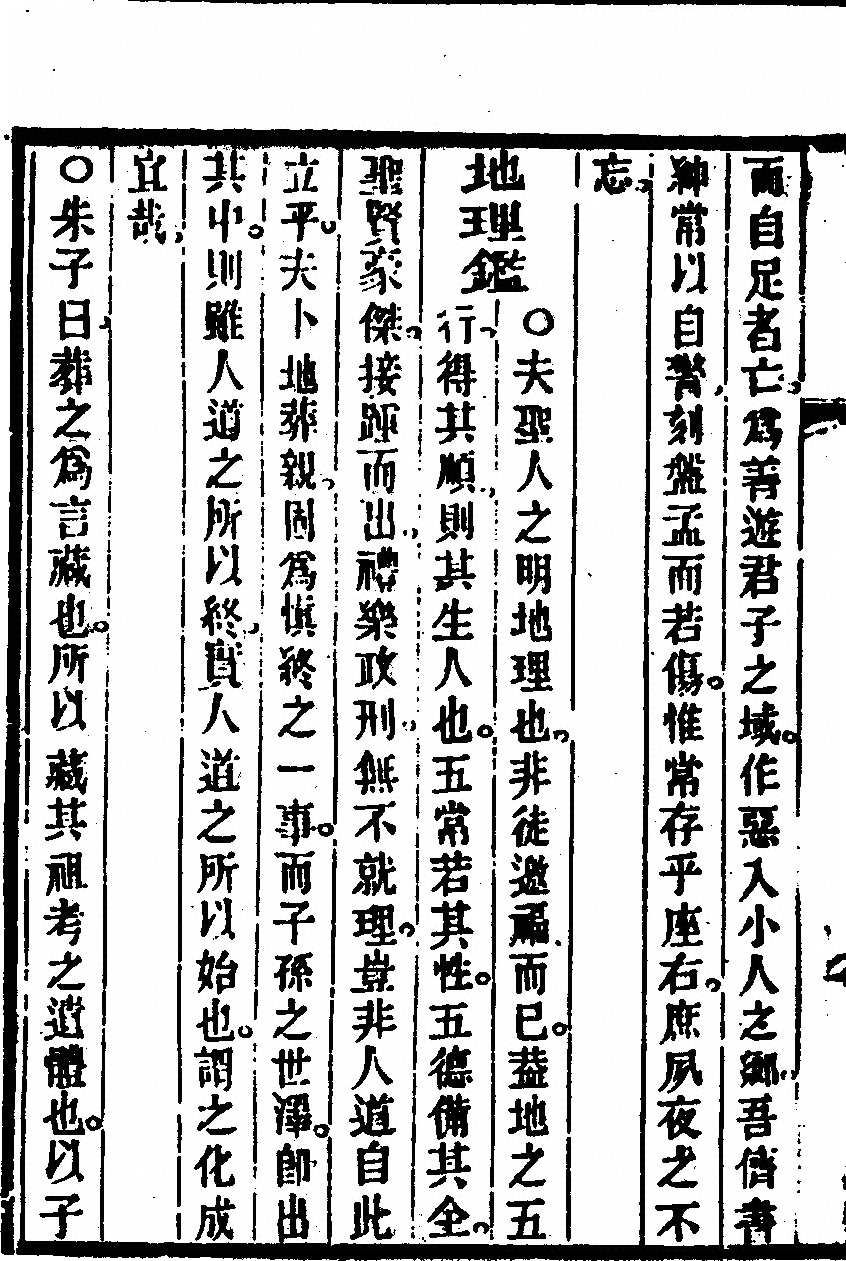 而自足者亡為善遊君子之域作惡入小人之鄉吾儕書
紳常以自警刻盤盂而若傷惟常存乎座右庶夙夜之不
忘
地理鑑
○夫聖人之明地理也非徒邀福而已蓋地之五
行得其順則其生人也五常若其性五德備其全
聖賢豪傑接踵而出禮樂政刑無不就理豈非人道自此
立乎夫卜地葬親固為慎終之一事而子孫之世澤即出
其中則雖人道之所以終實人道之所以始也謂之化成
宜哉
○朱子曰葬之為言藏也所以藏其祖考之遺體也以子